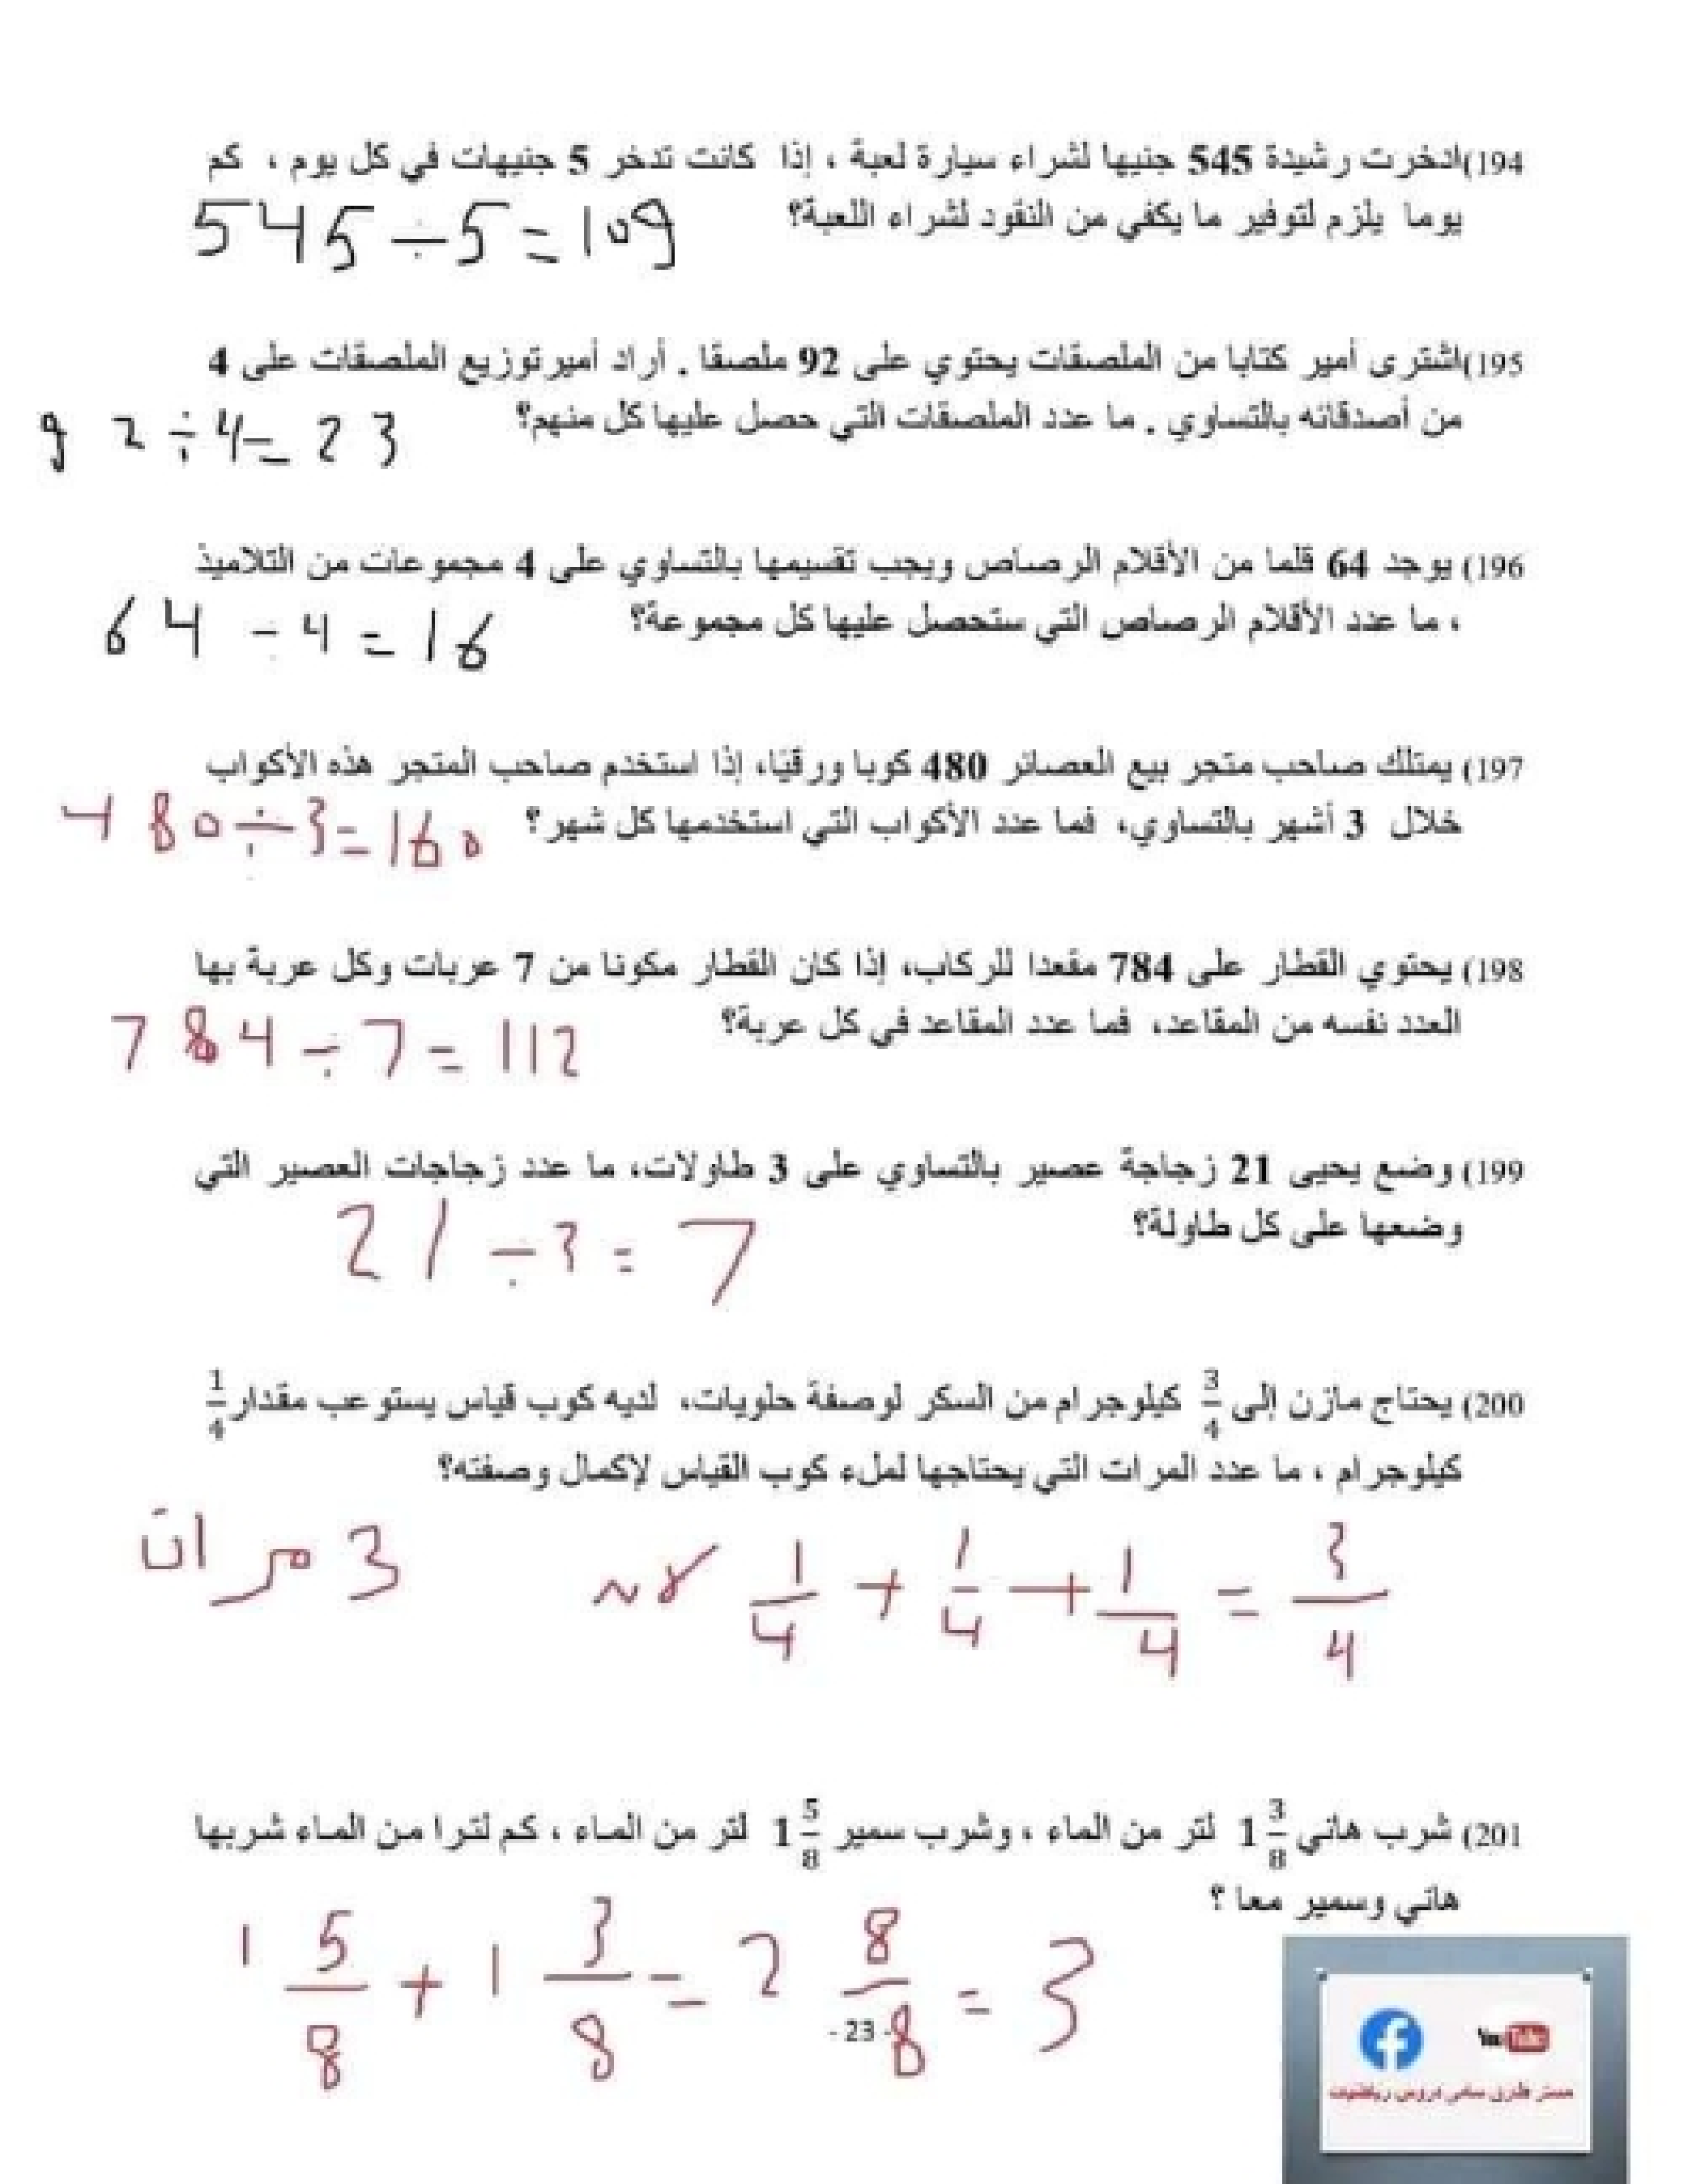 194)ادخرت رشيدة 545 جنيها لشراء سيارة لعبة ، إذا كانت تدخر 5 جنيهات في كل يوم ، كم
يوما يلزم لتوفير ما يكفي من النقود لشراء اللعبة؟
545 ÷ 5 = 109
195)اشترى أمير كتابا من الملصقات يحتوي على 92 ملصقا . أراد أمير توزيع الملصقات على 4
من أصدقائه بالتساوي . ما عدد الملصقات التي حصل عليها كل منهم؟
92 ÷ 4 = 23
196) يوجد 64 قلما من الأقلام الرصاص ويجب تقسيمها بالتساوي على 4 مجموعات من التلاميذ
، ما عدد الأقلام الرصاص التي ستحصل عليها كل مجموعة؟
64 ÷ 4 = 16
197) يمتلك صاحب متجر بيع العصائر 480 كوبا ورقيًا، إذا استخدم صاحب المتجر هذه الأكواب
خلال 3 أشهر بالتساوي، فما عدد الأكواب التي استخدمها كل شهر؟
480 ÷ 3 = 160
198) يحتوي القطار على 784 مقعدا للركاب، إذا كان القطار مكونا من 7 عربات وكل عربة بها
العدد نفسه من المقاعد، فما عدد المقاعد في كل عربة؟
784 ÷ 7 = 112
199) وضع يحيى 21 زجاجة عصير بالتساوي على 3 طاولات، ما عدد زجاجات العصير التي
وضعها على كل طاولة؟
21 ÷ 3 = 7
200) يحتاج مازن إلى 3/4 كيلوجرام من السكر لوصفة حلويات، لديه كوب قياس يستوعب مقدار 1/4
كيلوجرام ، ما عدد المرات التي يحتاجها لملء كوب القياس لإكمال وصفته؟
1/4 + 1/4 + 1/4 = 3/4
3 مرات
201) شرب هاني 1 3/8 لتر من الماء ، وشرب سمير 1 5/8 لتر من الماء ، كم لترا من الماء شربها
هاني وسمير معا ؟
1 5/8 + 1 3/8 = 2 8/8 = 3
- 23 -
You Tube
مستر طارق سامي دروس رياضيات